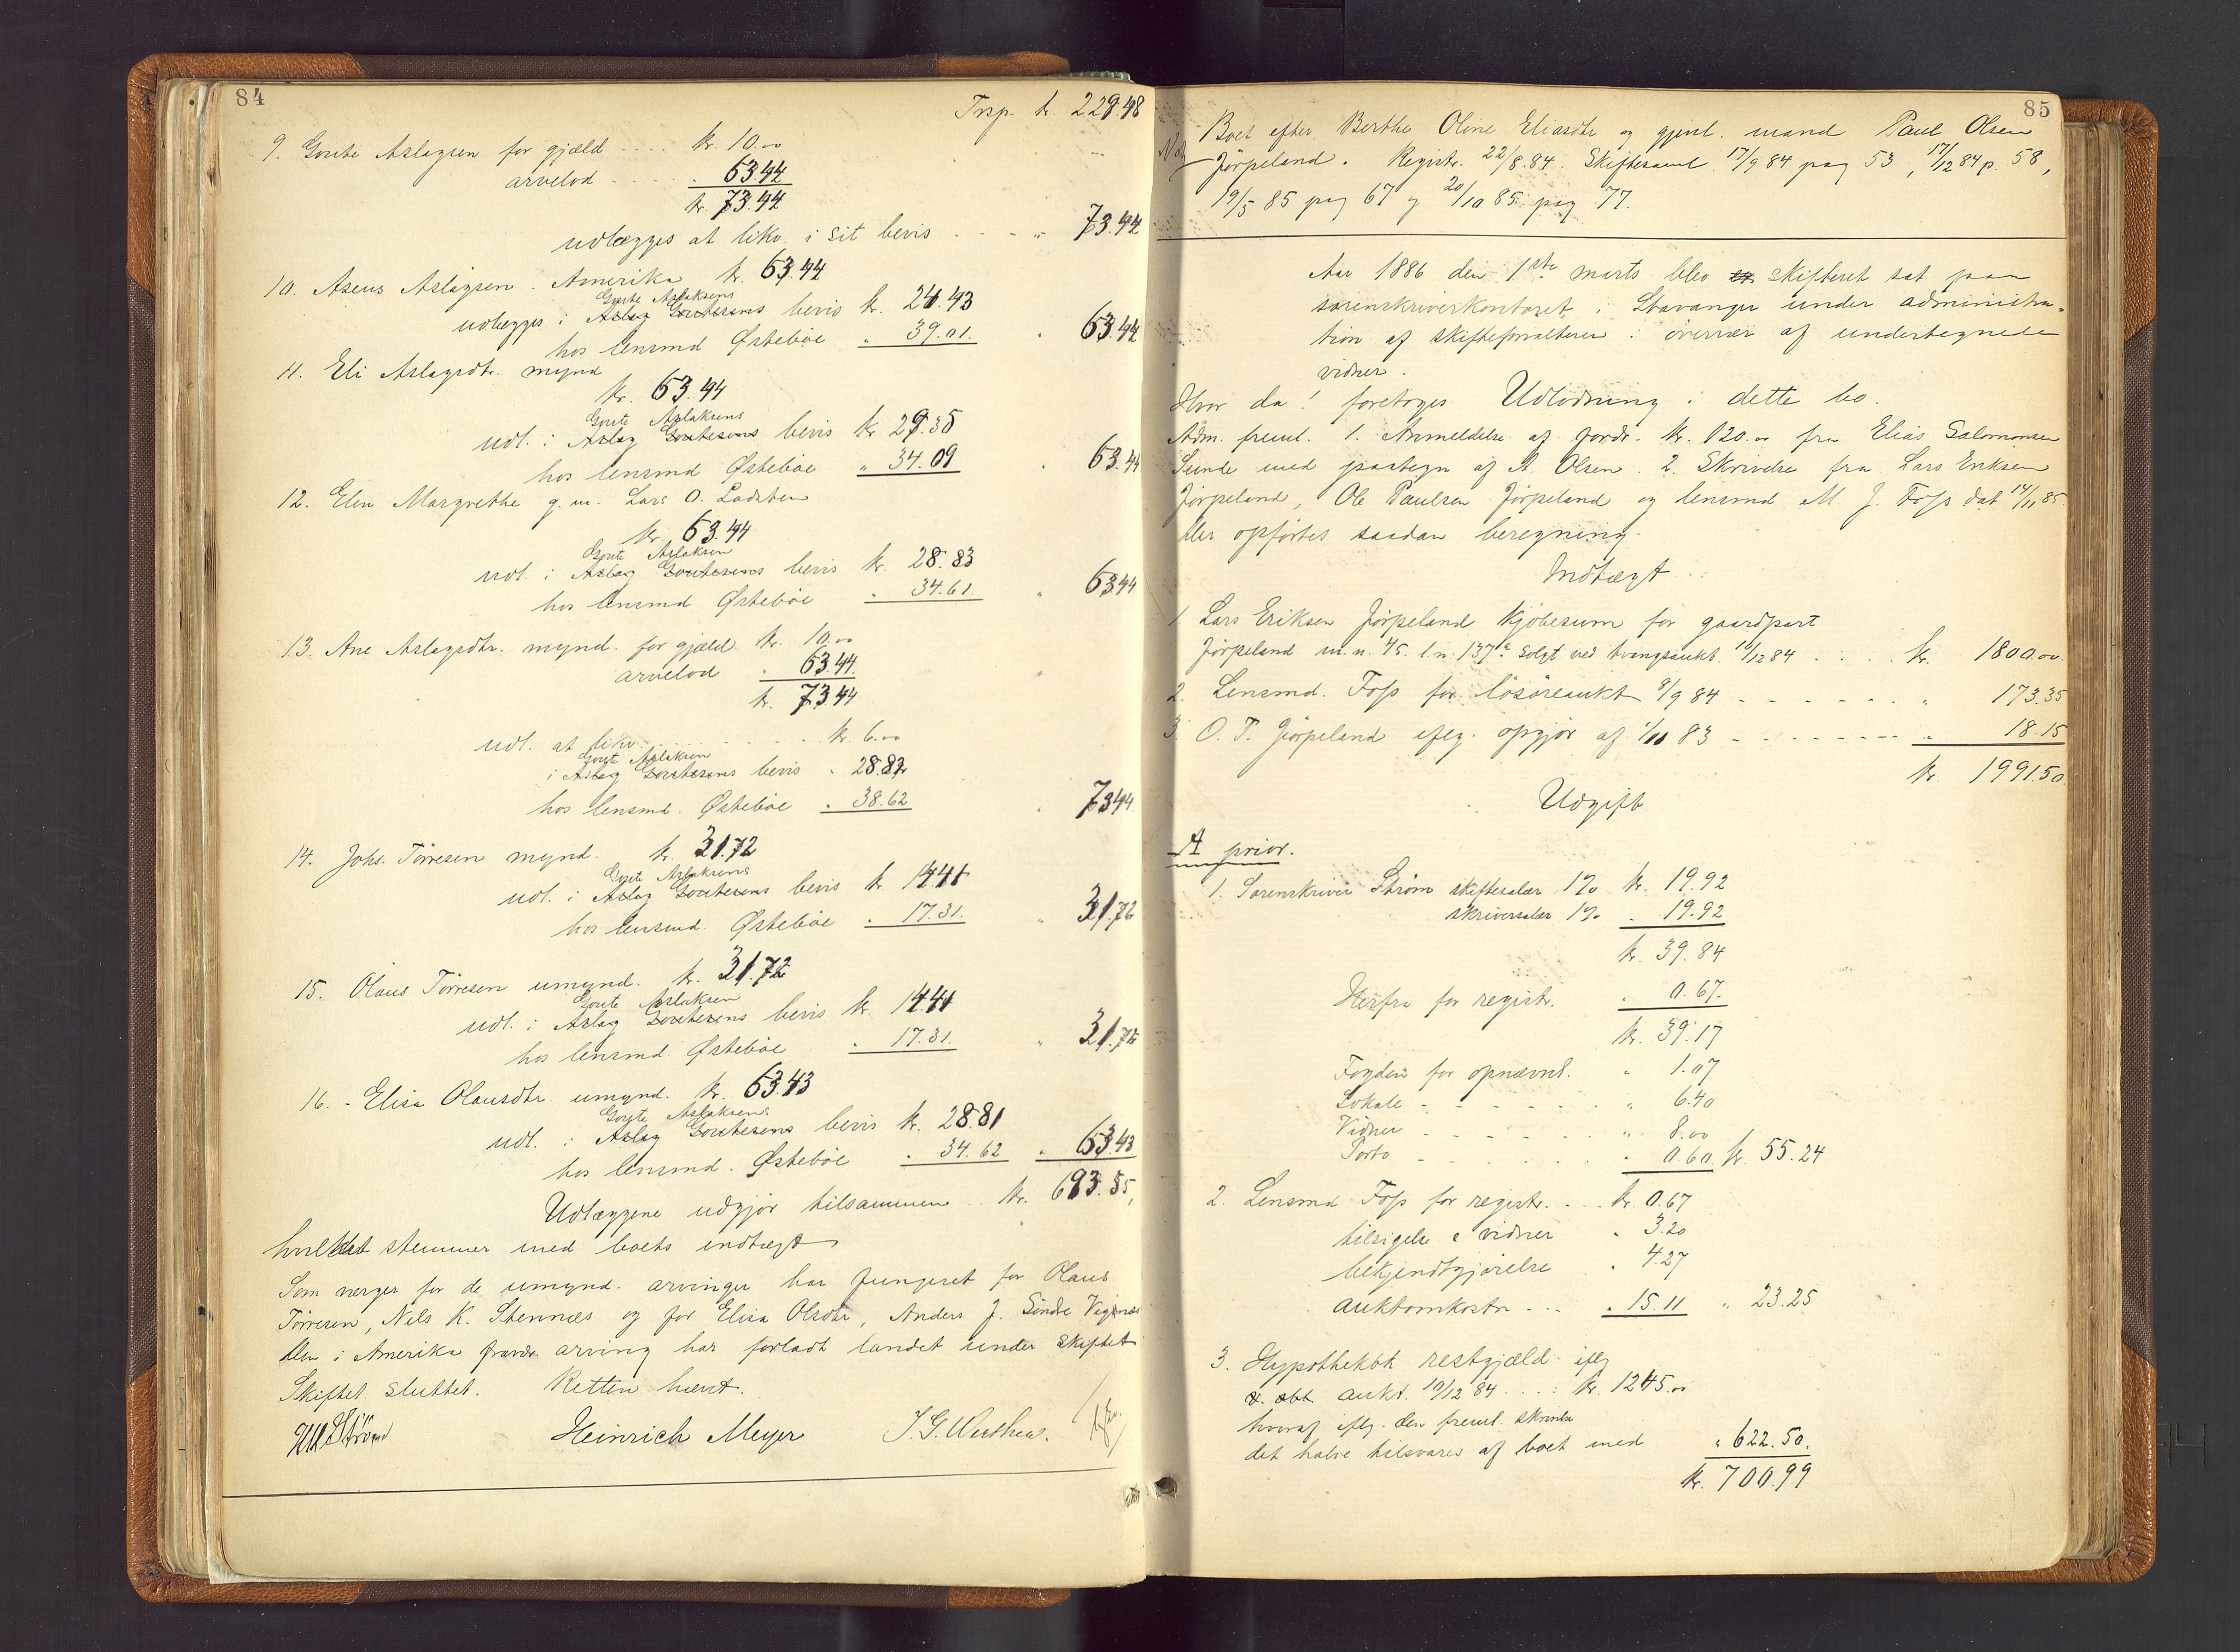 84
Trsp. kr. 229.48
9. Goute Aslagsen for gjæld .... kr. 10.00
arvelod ..... " 63.44
kr. 73.44
udlægges at likv. i sit bevis - - - " 73.44
10. Asens Aslagsen. Amerika kr. 63.44
Goute Aslaksens
udlægges i Aslag Goutesens bevis kr. 24.43
hos lensmd Østebøe " 39.01. " 63.44
11. Eli Aslagsdtr. mynd
kr. 63.44
Goute Aslaksens
udl. i Aslag Goutesens bevis kr 29.35
hos lensmd Østebøe " 34.09 " 63.44
12. Elen Margrethe g. m. Lars O. Ladsten
kr. 63.44
Goute Aslaksen
udl. i Aslag Goutesens bevis kr. 28.83
hos lensmd Østebøe " 34.61. " 63.44
13. Ane Aslagsdtr. mynd. for gjæld kr. 10.00
arvelod " 63.44.
kr. 73.44
udl. at likv. ......... kr. 6.00
Goute Aslaksen
i Aslag Goutesens bevis " 28.82
hos lensmd. Østebøe " 38.62 " 73.44.
14. Johs. Tørresen mynd. kr. 31.72
Goute Aslaksens
udl. i Aslag Goutesens bevis kr 14.41
hos lensmd. Østebøe " 17.31. " 31.72
15. Olaus Tørresen umynd. kr. 31.72
Goute Aslaksen
udl. i Aslag Goutesens bevis kr. 14.41
hos lensmd. Østebøe " 17.31. " 31.72
16. - Elisa Olausdtr. umynd. kr. 63.43
Goute Aslaksens
udl. i Aslag Goutesens bevis kr. 28.81
hos lensmd. Østebøe " 34.62 " 63.43
Udlæggene udgjør tilsammen kr. 693.55,
hvilket stemmer med boets indtægt
Som verger for de umynd. arvinger har fungeret for Olaus
Tørresen, Nils K. Stennæs og for Elisa Olsdtr, Anders J. Søndre Vignæs
Den i Amerika fravær. arving har forladt landet under skiftet
Skiftet sluttet. Retten hævet.
Strøm Heinrich Meyer J. G.
85
Boet efter Berthe Oline Eliasdtr og gjenl. mand Paul Olsen
Jørpeland. Registr. 22/8.84. Skiftesaml. 17/9 84 pag 53, 17/12 84 p. 58,
19/5 85 pag 67 og 20/10 85 pag 77.
Aar 1886 den 1ste marts blev skifteret sat paa
sorenskriverkontoret i Stavanger under administra-
tion af skifteforvalteren i overvær af undertegnede
vidner.
Hvor da! foretoges Udlodning i dette bo.
Adm. freml. 1. Anmeldelse af fordr. kr. 120.00 fra Elias Salomonsen
Sunde med paategn af A. Olsen. 2. Skrivelse fra Lars Eriksen
Jørpeland, Ole Paulsen Jørpeland og lensmd M. J. Foss dat 14/11 85.
Der opførtes saadan beregning.
Indtægt
1 Lars Eriksen Jørpeland kjøbesum for gaardpart
Jørpeland m. n. 45. l. n. 137c solgt ved tvangsaukt. 10/12 84 .... kr. 1800.00.
2. Lensmd. Foss for løsøreaukt 8/9 84 - - - - - - " 173.35
3. O. P. Jørpeland iflg. opgjør af 1/11 83 - - - - - - - " 18.15
kr. 1991.50
Udgift
A prior.
1. Sorenskriver Strøm skiftesalær 1% kr. 19.92
skriversalær 1% " 19.92
kr. 39.84
Herfra for registr. " 0.67.
kr. 39.17
Fogden for opnævnl. " 1.07
Lokale - - - - - " 6.40
Vidner - - - - - " 8.00
Porto - - - - - " 0.60 kr. 55.24
2. Lensmd Foss for registr. ... kr 0.67
tilsigelse & vidner " 3.20
bekjendtgjørelse " 4.27
auktomkostn - - - " 15.11 " 23.25
3. Hypothekbk restgjæld iflg
aukt. 10/12 84 .... kr. 1245.00
hvoraf iflg. den freml. skrivelse
det halve tilsvares af boet med " 622.50.
kr. 700.99